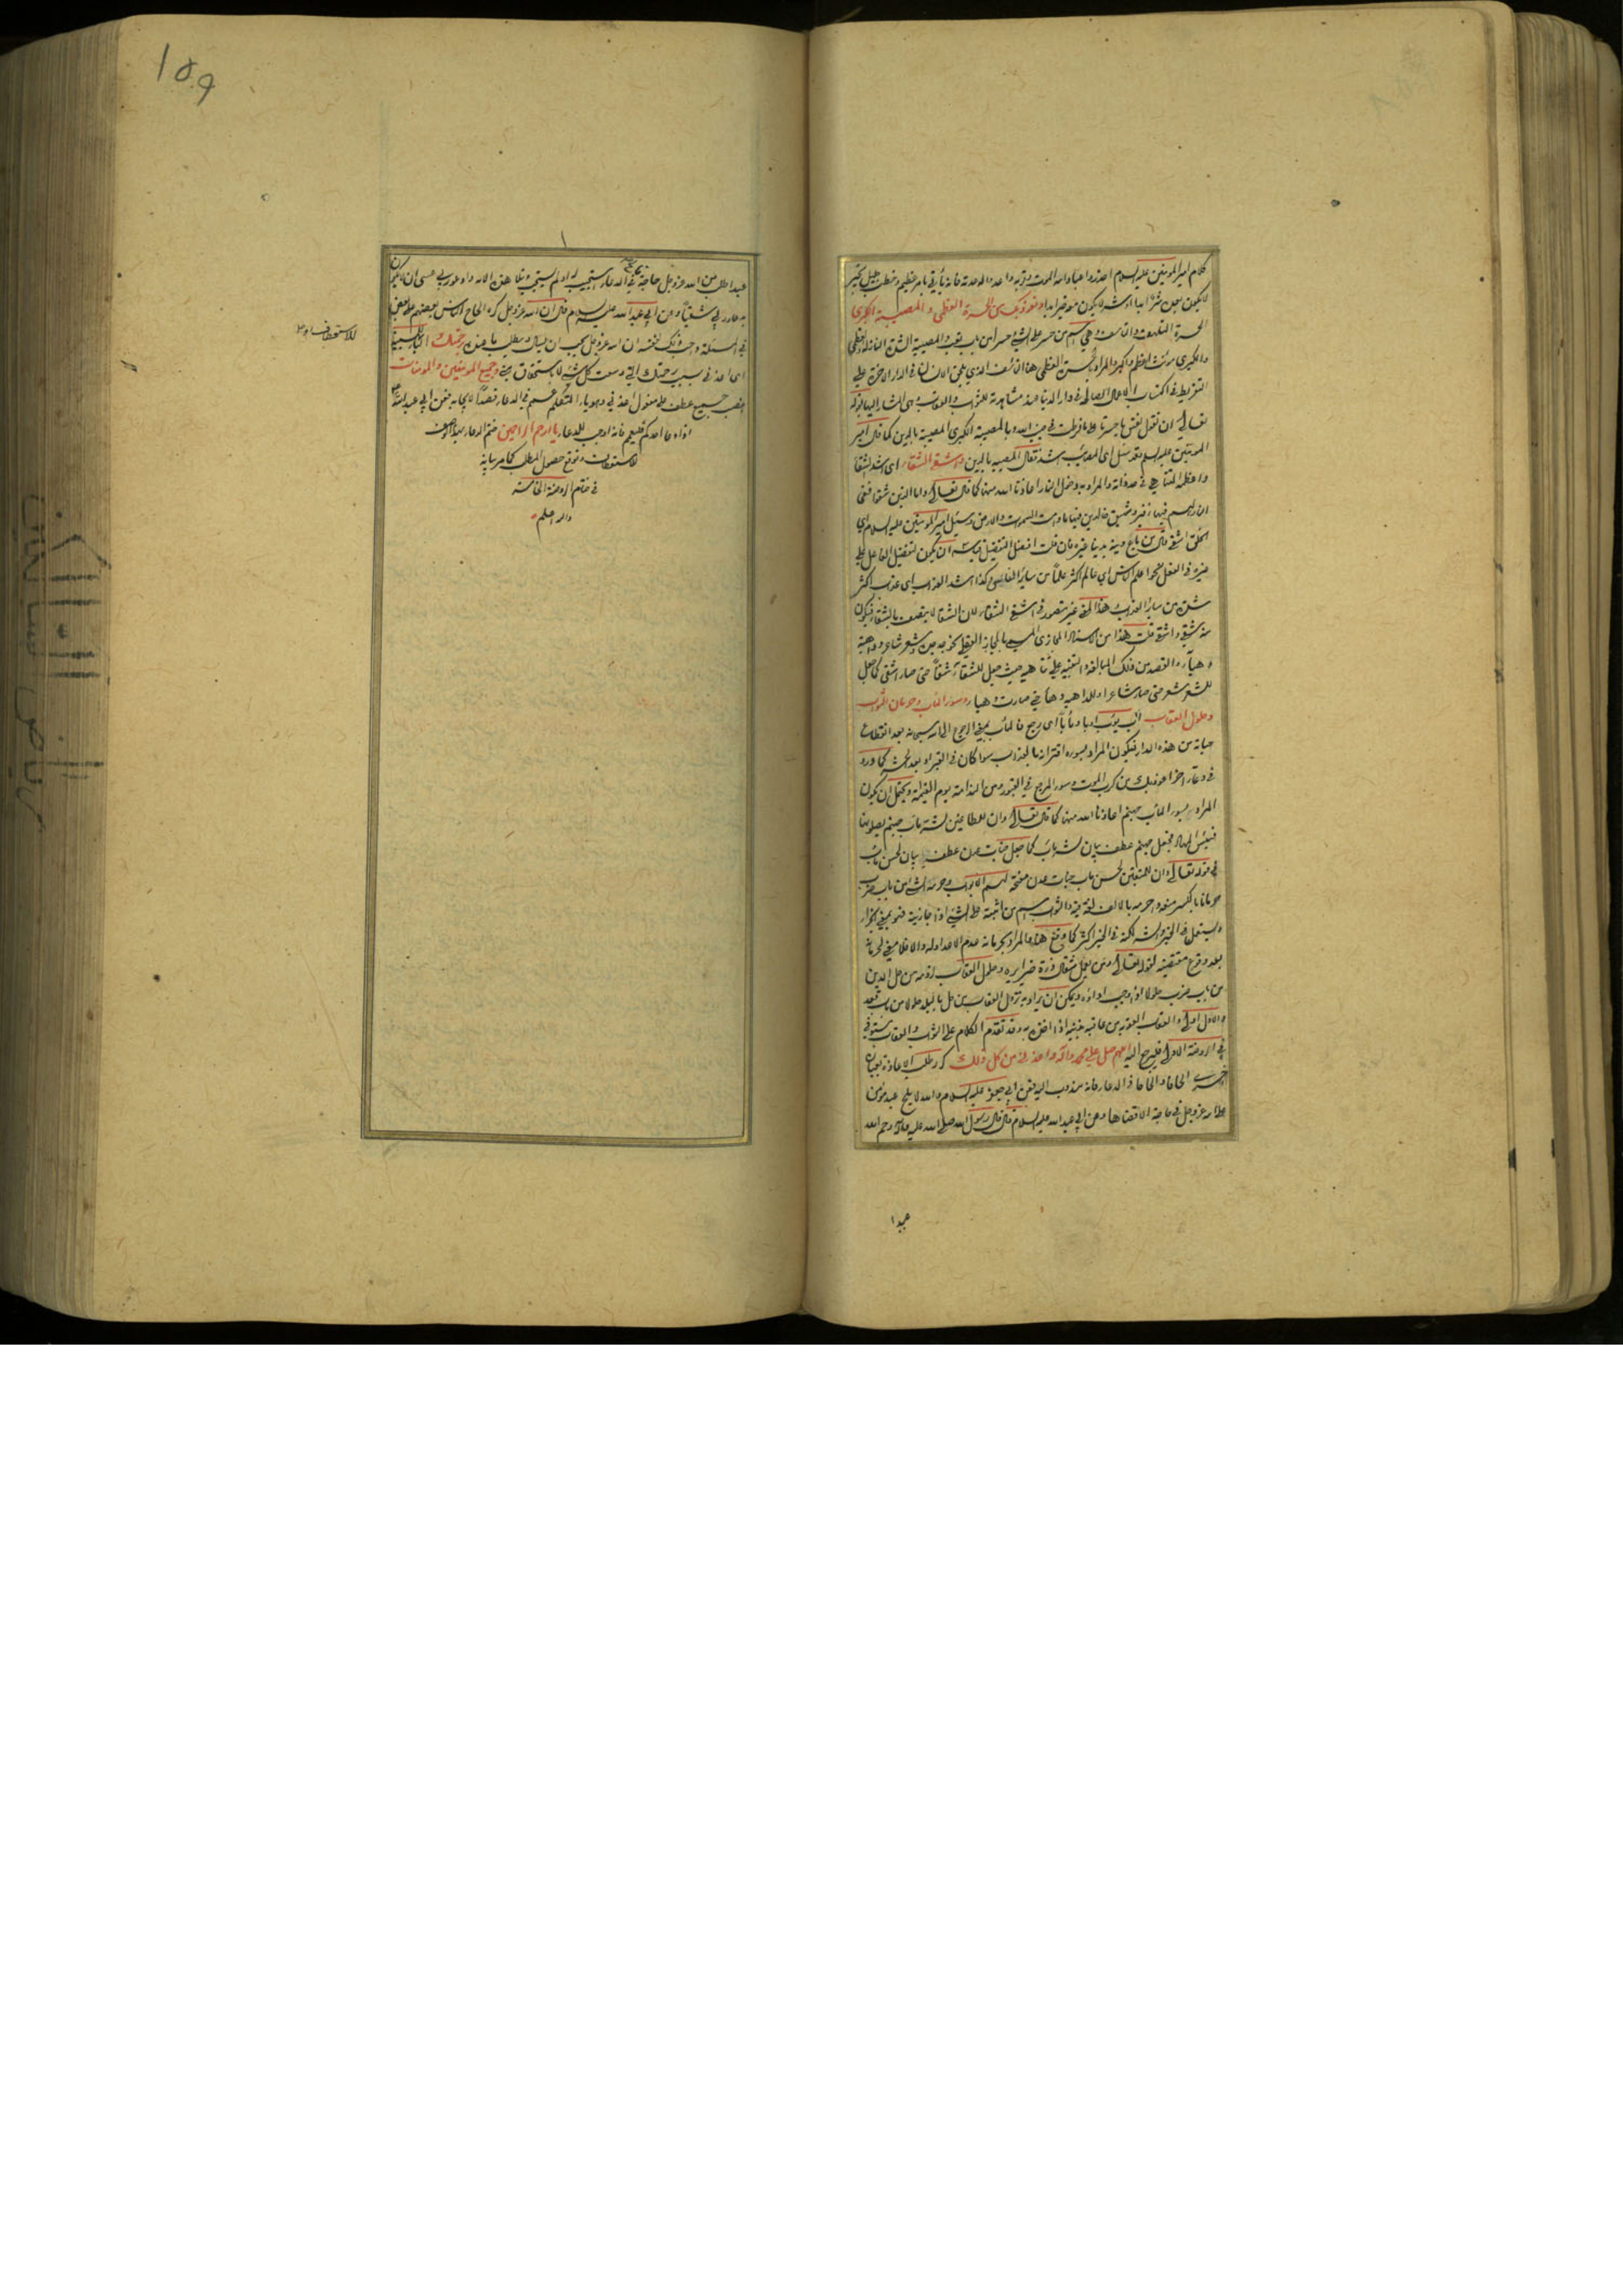 كلام امير المومنين عليه السلام احذروا عباد الله الموت وقربه واعدوا له عدته فانه يأتي بامر عظيم وخطب جليل بخير
لا يكون معه شر ابدا او شر لا يكون معه خير ابدا ونعوذ بك من الحسرة العظمى والمصيبة الكبرى
الحسرة التلهف والتاسف وهي اسم من حسر على الشئ حسرا من باب تعب والمصيبة الشدة النازلة والعظمى
والكبرى مونث الاعظم والاكبر والمراد بالحسرة العظمى هنا التاسف الذي يلحق الانسان في الدار الاخرة على
التفريط في اكتساب الاعمال الصالحة في دار الدنيا عند مشاهدة الثواب والعقاب وهي المشار اليها بقوله
تعالى ان تقول نفس يا حسرتا على ما فرطت في جنب الله وبالمصيبة الكبرى المصيبة بالدين كما قال امير
المومنين عليه السلم وقد سئل اى المصائب اشد فقال المصيبة بالدين واشقى الشقاء اى اشد الشقا
واعظمه المتناهي في صفاته والمراد به دخول النار اعاذنا الله منها كما قال تعالى واما الذين شقوا ففى
النار لهم فيها زفير وشهيق خالدين فيها ما دامت السموات والارض وسئل امير المومنين عليه السلام اى
الخلق اشقى قال من باع دينه بدنيا غيره فان قلت افعل التفضيل قياسه ان يكون لتفضيل الفاعل على
غيره في الفعل نحو اعلم الناس اى عالم اكثر علما من سائر الناس وكذا اشد العذاب اى عذاب اكثر
شدة من سائر العذاب وهذا المعنى غير متصور في اشقى الشقاء لان الشقا لا يتصف بالشقاء فيكون
منه شقى واشقى قلت هذا من الاسناد المجازى المسمى بالمجاز العقلى كجد جده وشعر شاعر وداهية
دهياء والقصد من ذلك المبالغة والتنبيه على تناهيه حيث جعل للشقاء شقاً حتى صار اشقى كما جعل
للشعر شعر حتى صار شاعرا وللداهية دهاً حتى صارت دهيا وسوء الماب وحرمان الثواب
وحلول العقاب آب يؤب اوبا ومأبا اى رجع فالمآب بمعنى الرجوع الى الله سبحانه بعد انقطاع
حياته من هذه الدار فيكون المراد بسوءه اقترانه بالعذاب سوا كان في القبر او بعد الحشر كما ورد
في دعاء اخر اعوذ بك من كرب الموت وسوء المرجع في القبور ومن الندامة يوم القيمة ويحتمل ان يكون
المراد بسوء الماب جهنم اعاذنا الله منها كما قال تعالى وان للطاغين لشر مآب جهنم يصلونها
فبئس المهاد فجعل جهنم عطف بيان لشر مآب كما جعل جنات عدن عطف بيان لحسن مآب
في قوله تعالى وان للمتقين لحسن مآب جنات عدن مفتحة لهم الابواب وحرمه الشئ من باب ضرب
حرمانا بالكسر منعه واحرمه بالالف لغة فيه والثواب اسم من اثبته على الشئ اذا جازيته فهو بمعنى الجزاء
ويستعمل في الخير والشر لكنه في الخير اكثر كما وقع هنا والمراد بحرمانه عدم الاعداد له والا فلا معنى لحرمانه
بعد وقوع مقتضيه لقوله تعالى ومن يعمل مثقال ذرة خيرا يره وحلول العقاب لزومه من حل الدين
من باب ضرب حلولا اذا وجب اداؤه ويمكن ان يراد به نزول العقاب من حل بالبلد حلولا من باب قعد
والاول اولى والعقاب العقوبة من عاقبه بذنبه اذا اخذه به وقد تقدم الكلام على الثواب والعقاب مستوفى
في الروضة الاولى فليرجع اليه اللهم صل على محمد وآله واعذنى من كل ذلك كرر طلب الاعاذة بعبارة
اخرى الحاحا والحاحا في الدعاء فانه مندوب اليه فعن ابى جعفر عليه السلام والله لا يلح عبد مؤمن
على الله عز وجل في حاجة الا قضاها وعن ابى عبد الله عليه السلام قال قال رسول الله صلى الله عليه واله رحم الله
عبدا
١٥٩
عبدا طلب من الله عز وجل حاجة فالح في الدعاء استجيب له او لم يستجب وتلا هذه الاية وادعو ربي عسى ان لا اكون
بدعاء ربي شقياً وعن ابي عبد الله عليه السلام قال ان الله عز وجل كره الحاح الناس بعضهم على بعض
في المسئلة واحب ذلك لنفسه ان الله عز وجل يحب ان يسال ويطلب ما عنده برحمتك الباء للسببية
اى اعذنى بسبب رحمتك التي وسعت كل شئ لا باستحقاق مني وجميع المومنين والمومنات
نصب جميع عطف على مفعول اعذني وهو ياء المتكلم عمم في الدعاء قصداً للاجابة فعن ابي عبد الله
اذا دعا احدكم فليعم فانه اوجب للدعاء يا ارحم الراحمين ختم الدعاء بهذا الوصف
للاستعطاف وتوقع حصول المطلب كما مر بيانه
في ختام الروضة الخامسة
والله اعلم
للاستعطاف